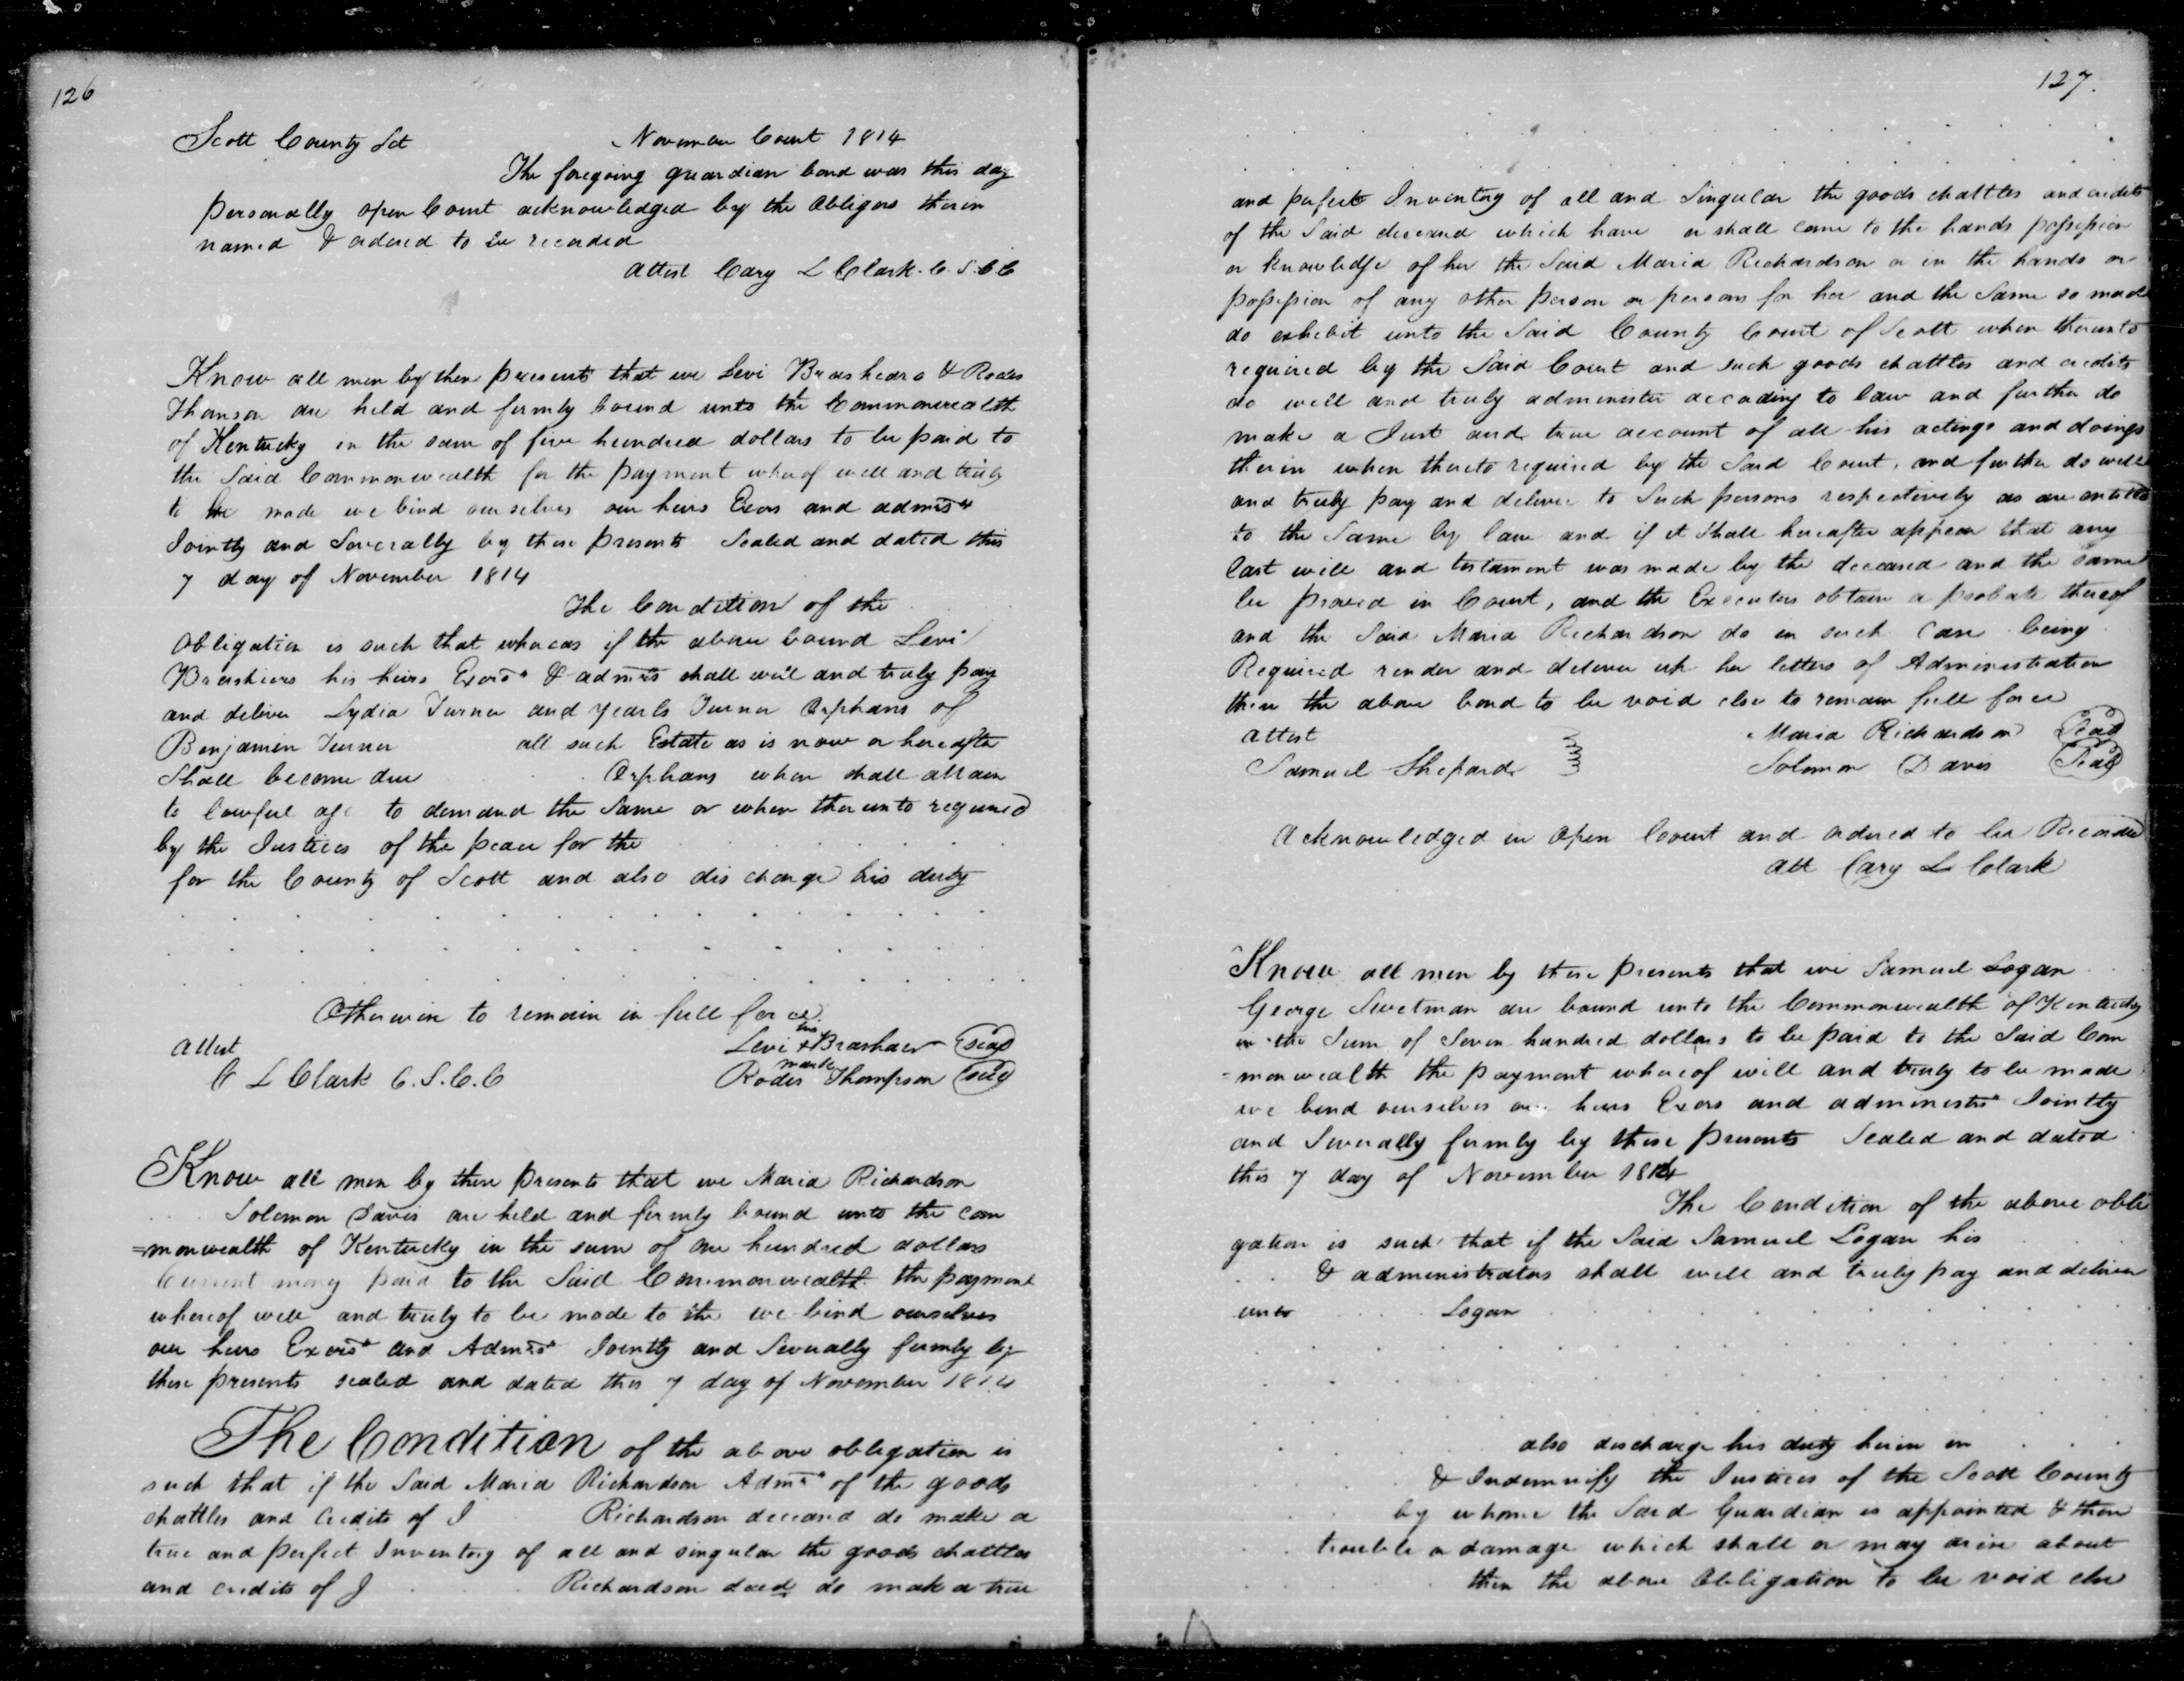 126
Scott County Sct November Court 1814
The foregoing guardian bond was this day
personally open Court acknowledged by the Obligors therin
named & ordered to be recorded
Attest Cary L Clark. C. S. C C
Know all men by these presents that we Levi Brashears & Rodes
Thomson are held and firmly bound unto the Commonwealth
of Kentucky in the sum of five hundred dollars to be paid to
the Said Commonwealth for the payment wherof well and truly
to be made we bind ourselves our heirs Exors and admrs
Jointly and Severally by these presents Sealed and dated this
7 day of November 1814
The Condition of the
Obligation is such that whereas if the above bound Levi
Brashears his heirs Exors & admrs shall well and truly pay
and deliver Lydia Turner and Orphans of
Benjamin Turner all such Estate as is now or hereafter
Shall become due Orphans when shall attain
to lawful age to demand the Same or when therunto required
by the Justices of the peace for the
for the County of Scott and also discharge his duty
Otherwise to remain in full force
Attest Levi his x mark Brashaer seal
C L Clark C. S. C. C Rodes Thompson seal
Know all men by these presents that we Maria Richardson
Solomon Davis are held and firmly bound unto the com
=monwealth of Kentucky in the sum of one hundred dollars
Current mony paid to the Said Commonwealth the payment
whereof well and truly to be made to the we bind ourselves
our heirs Exors and Admrs Jointly and Severally firmly by
these presents sealed and dated this 7 day of November 1814
The Condition of the above obligation is
such that if the Said Maria Richardson Admrs of the goods
chattles and Credits of J Richardson deceasd do make a
true and perfect Inventory of all and singular the goods chattles
and credits of J Richardson decd do make a true
127.
and perfect Inventory of all and Singular the goods chattles and credits
of the Said deceased which have or shall come to the hands possession
or knowledge of her the Said Maria Richardson or in the hands or
possession of any other person or persons for her and the Same so made
do exhibit unto the Said County Court of Scott when therunto
required by the Said Court and such goods chattles and credits
do well and truly administer according to law and further do
make a Just and true account of all his actings and doings
therin when thereto required by the Said Court, and further do well
and truly pay and deliver to Such persons respectively as are entitled
to the Same by law and if it Shall hereafter appear that any
last will and testament was made by the deceased and the same
be proved in Court, and the Executors obtain a probate thereof
and the Said Maria Richardson do in such Case being
Required render and deliver up her letters of Administration
then the above bond to be void else to remain full force
Attest Maria Richardson Seal
Samuel Shepard Solomon Davis Seal
Acknowledged in Open Court and ordered to be Recorded
Att Cary L Clark
Know all men by these presents that we Samuel Logan
George Sweetman are bound unto the Commonwealth of Kentucky
in the Sum of Seven hundred dollars to be paid to the Said Com
=monwealth the payment whereof will and truly to be made
we bend ourselves our heirs Exors and administrs Jointly
and Severally firmly by these presents Sealed and dated
this 7 day of November 1814
The Condition of the above obli
gation is such that if the Said Samuel Logan his
& administrators shall well and truly pay and deliver
unto Logan
also discharge his duty herin in
& Indemnify the Justices of the Scott County
by whome the Said Guardian is appointed & there
trouble or damage which shall or may arise about
then the above Obligation to be void else